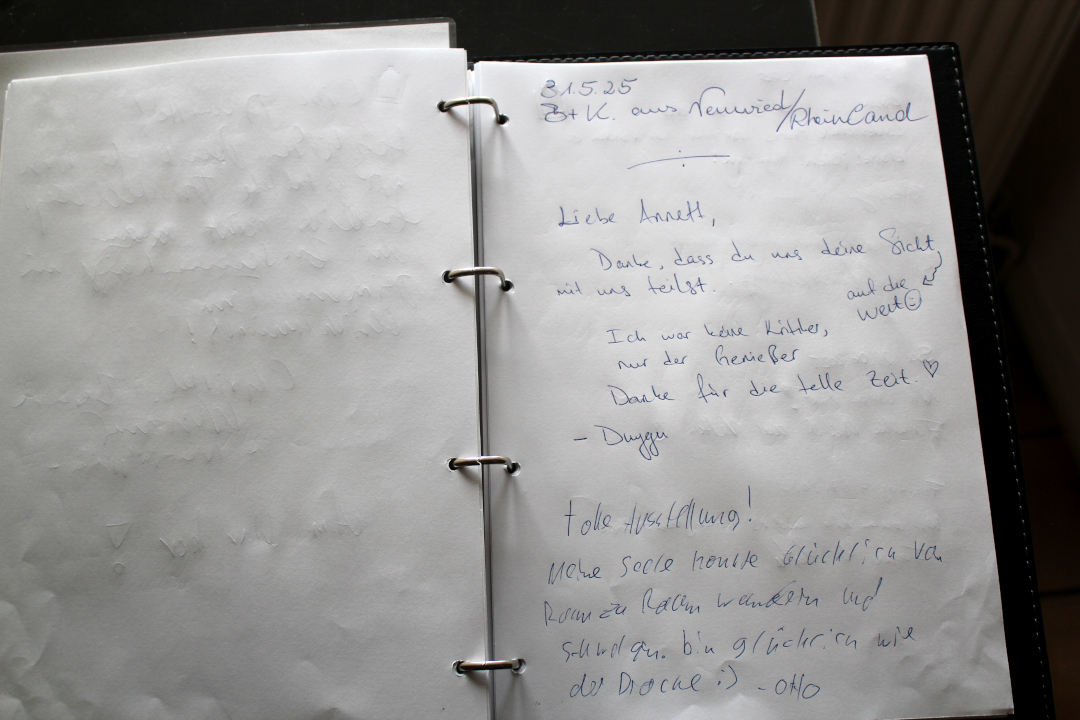 31.5.25
B+K. aus Neuwied/Rheinland
Liebe Annett,
Danke, dass du uns deine Sicht
mit uns teilst.
auf die
Welt
Ich war keine Kritiker,
nur der Genießer
Danke für die tolle Zeit. ♡
- Duygu
Tolle Ausstellung!
Meine Seele konnte glücklich von
Raum zu Raum wandern und
bin glücklich wie
der Drache :) - Otto